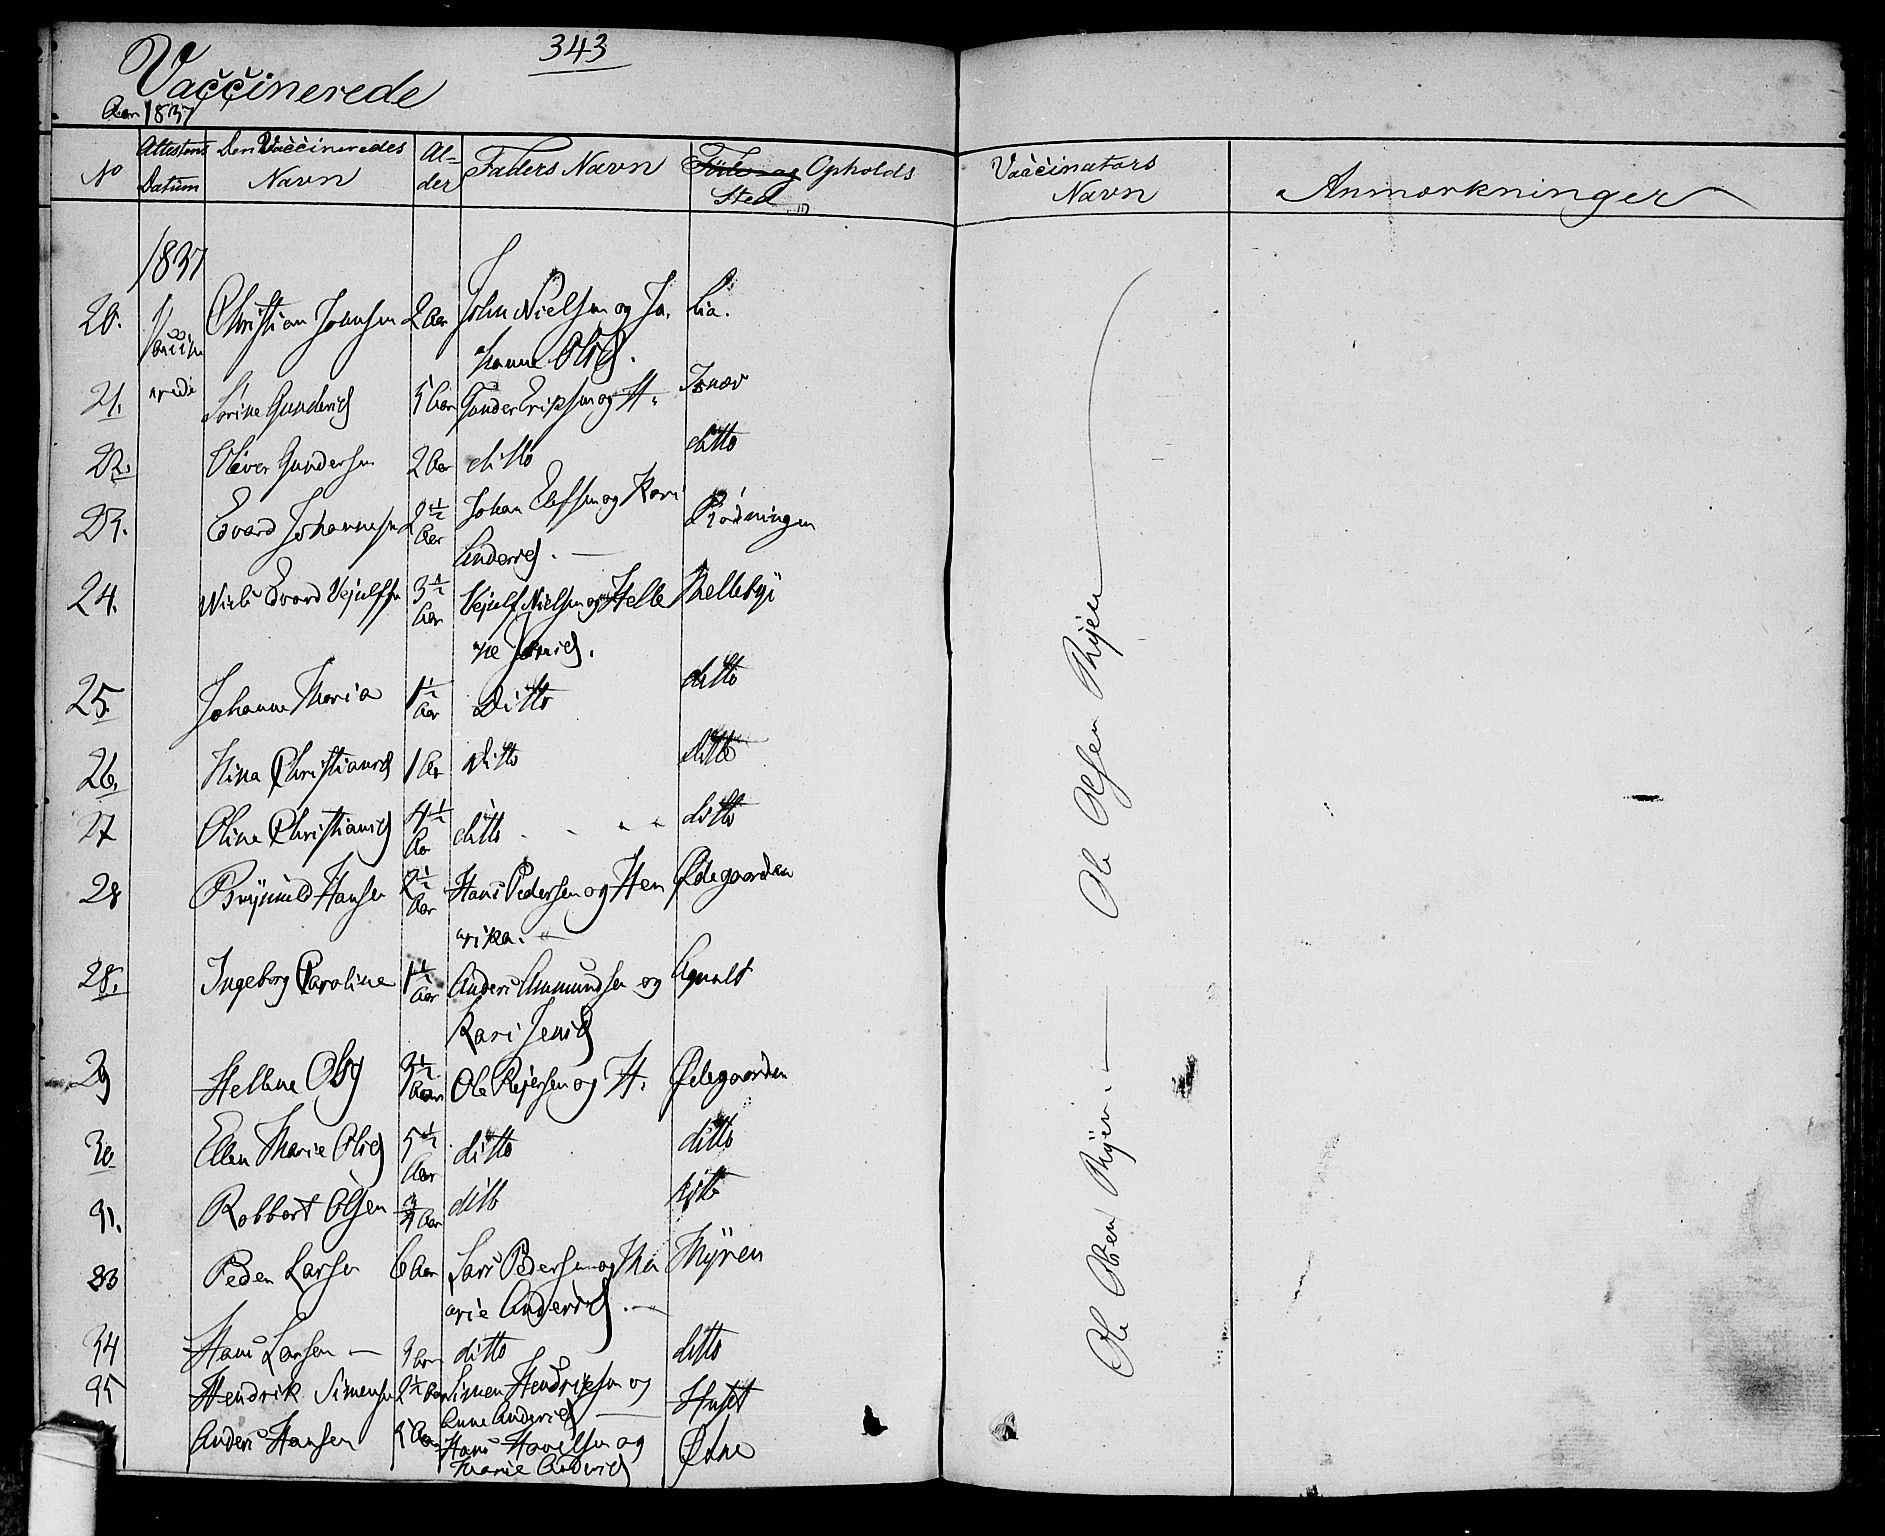 343
Vaccinerede
Aar 1837
No Attestens Datum Den Vaccineredes Navn Alder Faders Navn Føde og Opholds Sted Vaccinators Navn Anmærkninger
1837
20. Vaccinerede Christian Johnsen 2 Aar John Nielsen og Jo- Lia.
hanne Olsd.
21. Sørine Gundersd 5 Aar Gunder Eriksen og H.
22. Oliver Gundersen 2 Aar ditto ditto
23. Edvard Johannesen 2 1/2 Aar Johan Elefsen og Kari Rødningen
Andersd. —
24. Niels Edvard Vejulfsen 3 1/2 Aar Vejulf Nielsen og Helle
ne Jensd.
25. Johanne Maria 1 1/2 Aar Ditto ditto
26. Nina Christiansd 1 Aar Ditto ditto
27 Oline Christiansd 4 1/2 Aar ditto ditto
28 Brynild Hansen 2 1/2 Aar Hans Pedersen og Hen Ødegaarden
rika. —
28. Ingeborg Caroline 1 1/2 Aar Anders Ammundsen og Agnalt
Kari Jensd
29 Hellene Olsd 3 1/2 Aar Ole Rejersen og H. Ødegaarden
30 Ellen Marie Olsd 5 1/2 Aar ditto ditto
31. Robbert Olsen 3/4 Aar ditto ditto
33 Peder Larsen 6 Aar Lars Pedersen og Ma Myren
rie Andersd. —
34 Hans Larsen — 3 Aar ditto ditto
35 Hendrik Simensen 2 1/2 Aar Simen Hendriksen og
Anne Andersd —
Anders Hansen Aar Hans
Marie Andersd
Ole Olsen Myren
Ole Olsen Myren. —